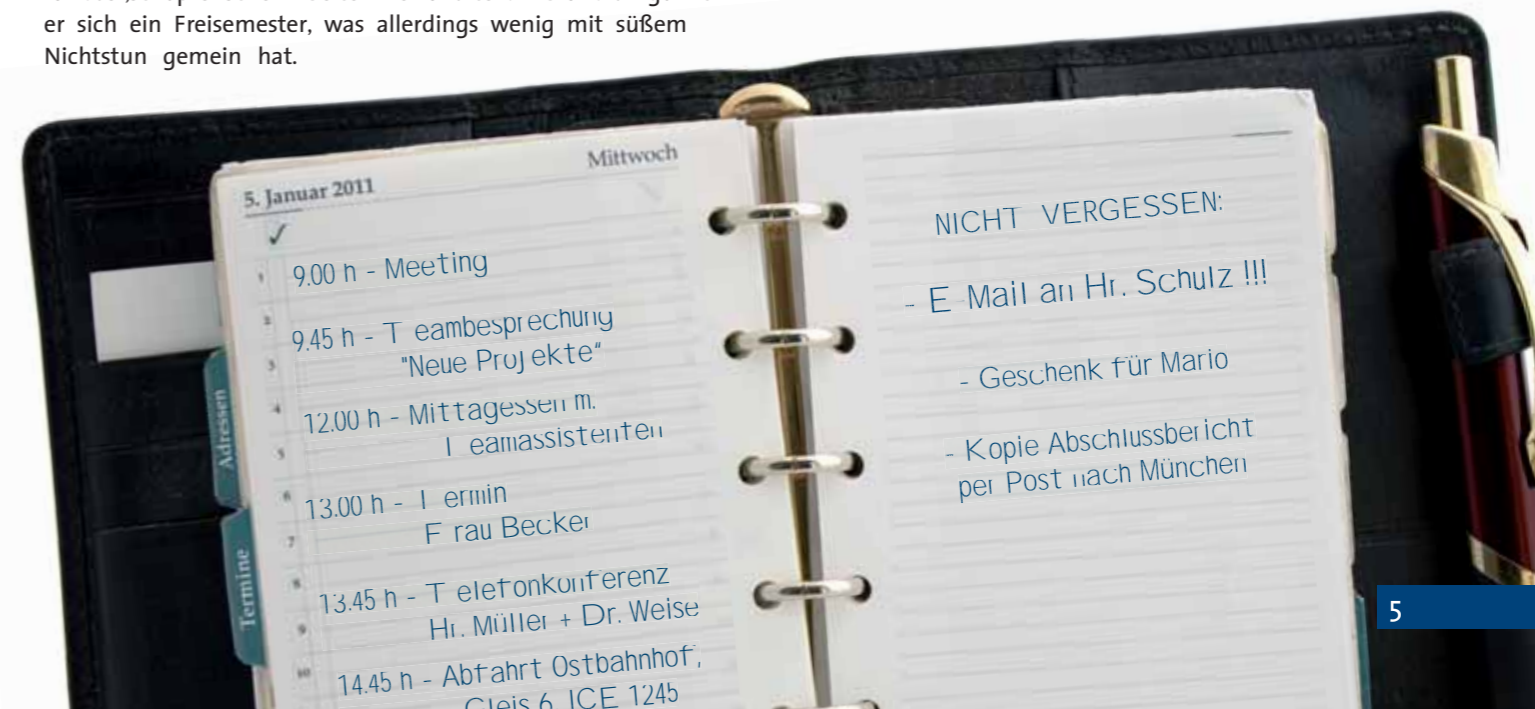 er sich ein Freisemester, was allerdings wenig mit süßem
Nichtstun gemein hat.
Mittwoch
5. Januar 2011
✓
1
9.00 h - Meeting
2
9.45 h - Teambesprechung
3
"Neue Projekte“
4
12.00 h - Mittagessen m.
5
Teamassistenten
6
13.00 h - Termin
7
Frau Becker
8
13.45 h - Telefonkonferenz
9
Hr. Müller + Dr. Weise
10
14.45 h - Abfahrt Ostbahnhof,
Gleis 6, ICE 1245
Adressen
Termine
NICHT VERGESSEN:
- E Mail an Hr. Schulz !!!
- Geschenk für Mario
- Kopie Abschlussbericht
per Post nach München
5